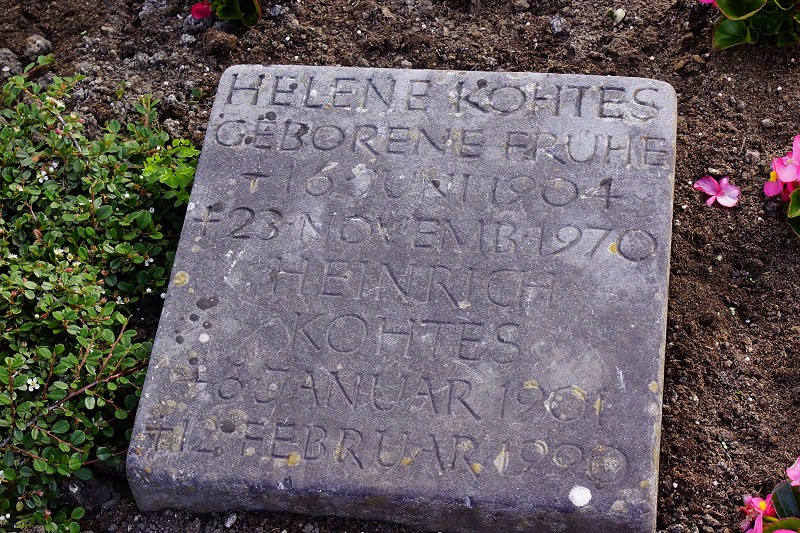 HELENE KOHTES
GEBORENE FRÜHE
+ 16 JUNI 1904
+ 23 NOVEMB 1970
HEINRICH
KOHTES
+ 6 JANUAR 1901
+ 12 FEBRUAR 1990